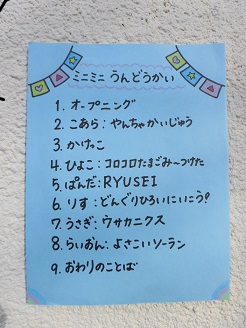 ミニミニ うんどうかい
1. オープニング
2. こあら：やんちゃかいじゅう
3. かけっこ
4. ひよこ：コロコロたまごみ〜つけた
5. ぱんだ：RYUSEI
6. りす：どんぐりひろいにいこう!
7. うさぎ：ウサカニクス
8. らいおん：よさこいソーラン
9. おわりのことば